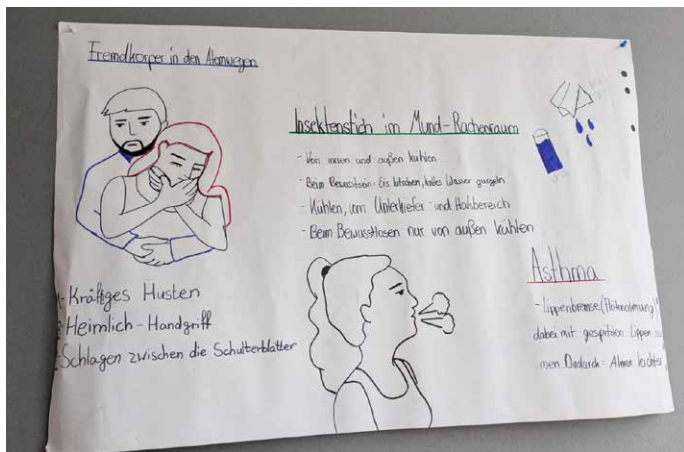 Fremdkörper in den Atemwegen
- Kräftiges Husten
Heimlich-Handgriff
Schlagen zwischen die Schulterblätter
Insektenstich im Mund-Rachenraum
- Von innen und außen kühlen
- Beim Bewusstsein: Eis lutschen, kaltes Wasser gurgeln
- Kühlen, vom Unterkiefer- und Halsbereich
- Beim Bewusstlosen nur von außen kühlen
Asthma
- Lippenbremse
dabei mit gespitzten Lippen
Dadurch: Atmen leichter